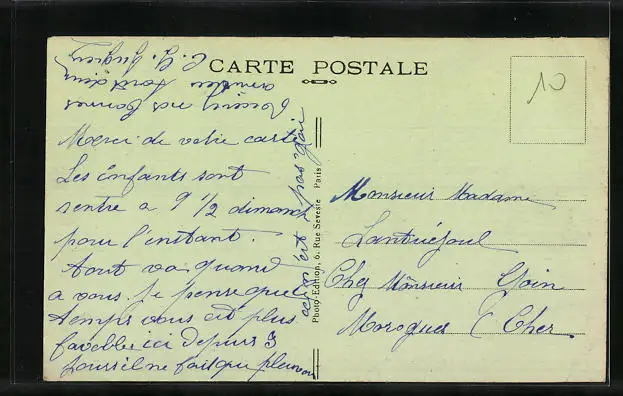 CARTE POSTALE
10
Merci de votre carte
Les enfants sont
rentre a 9 1/2 dimanch
pour l'instant.
Tout va quand
a vous. Je pense que le
temps vous est plus
favoble ici depuis 3
jours il ne fait que pleuvoi
ce n'est pas gai
Recevez nos bonnes
amities tous deux
Photo-Edition, 6, Rue Seveste Paris
Monsieur Madame
Lantuéjoul
Chez Monsieur Goin
Morogues (Cher)